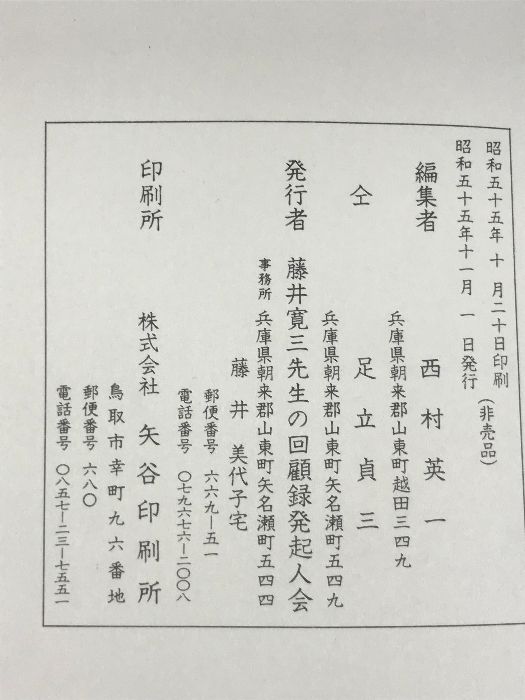 昭和五十五年 十 月二十日印刷
昭和五十五年十一月 一 日発行
(非売品)
編集者 西村英一
兵庫県朝来郡山東町越田三四九
仝 足立貞三
兵庫県朝来郡山東町矢名瀬町五四九
発行者 藤井寛三先生の回顧録発起人会
事務所 兵庫県朝来郡山東町矢名瀬町五四四
藤井 美代子宅
郵便番号 六六九―五一
電話番号 〇七九六七六―二〇〇八
印刷所 株式会社 矢谷印刷所
鳥取市幸町九六番地
郵便番号 六八〇
電話番号 〇八五七―二三―七五五一